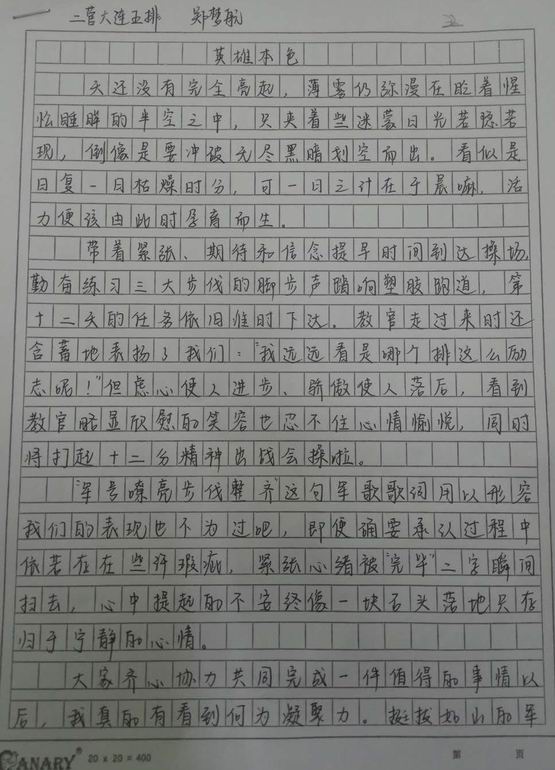 二营六连五排 郑梦航
英雄本色
天还没有完全亮起，薄雾仍弥漫在眨着惺
忪睡眸的半空之中，只夹着些迷蒙日光若隐若
现，倒像是要冲破无尽黑暗划空而出。看似是
日复一日枯燥时分，可一日之计在于晨嘛，活
力便该由此时孕育而生。
带着紧张、期待和信念提早时间到达操场，
勤奋练习三大步伐的脚步声踏响塑胶跑道，第
十二天的任务依旧准时下达。教官走过来时还
含蓄地表扬了我们："我远远看是哪个排这么励
志呢！"但虑心使人进步、骄傲使人落后，看到
教官略显欣慰的笑容也忍不住心情愉悦，同时
将打起十二分精神出战会操啦。
"军号嘹亮步伐整齐"这句军歌歌词用以形容
我们的表现也不为过吧，即便确要承认过程中
依若存在些许瑕疵，紧张心绪被"完毕"二字瞬间
扫去，心中提起的不安终像一块石头落地只存
归于宁静的心情。
大家齐心协力共同完成一件值得的事情以
后，我真的有看到何为凝聚力。挺拔如山的军
CANARY 20 x 20 = 400 第 页